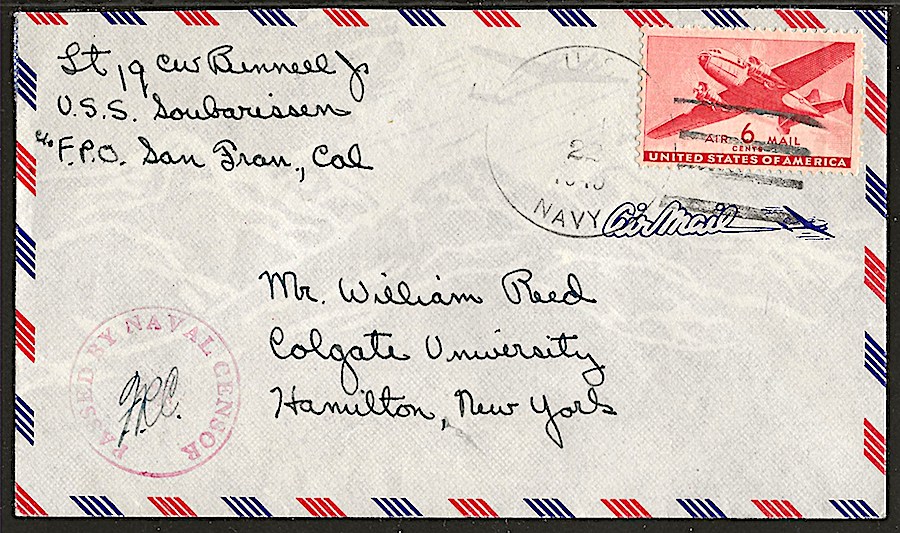 Lt jg CW Bennell Jr
U.S.S. Soubarissen
c/o F.P.O. San Fran., Cal
U.S.
22
NAVY
AIR 6 MAIL
CENTS
UNITED STATES OF AMERICA
Air Mail
Mr. William Reed
Colgate University
Hamilton, New York
PASSED BY NAVAL CENSOR